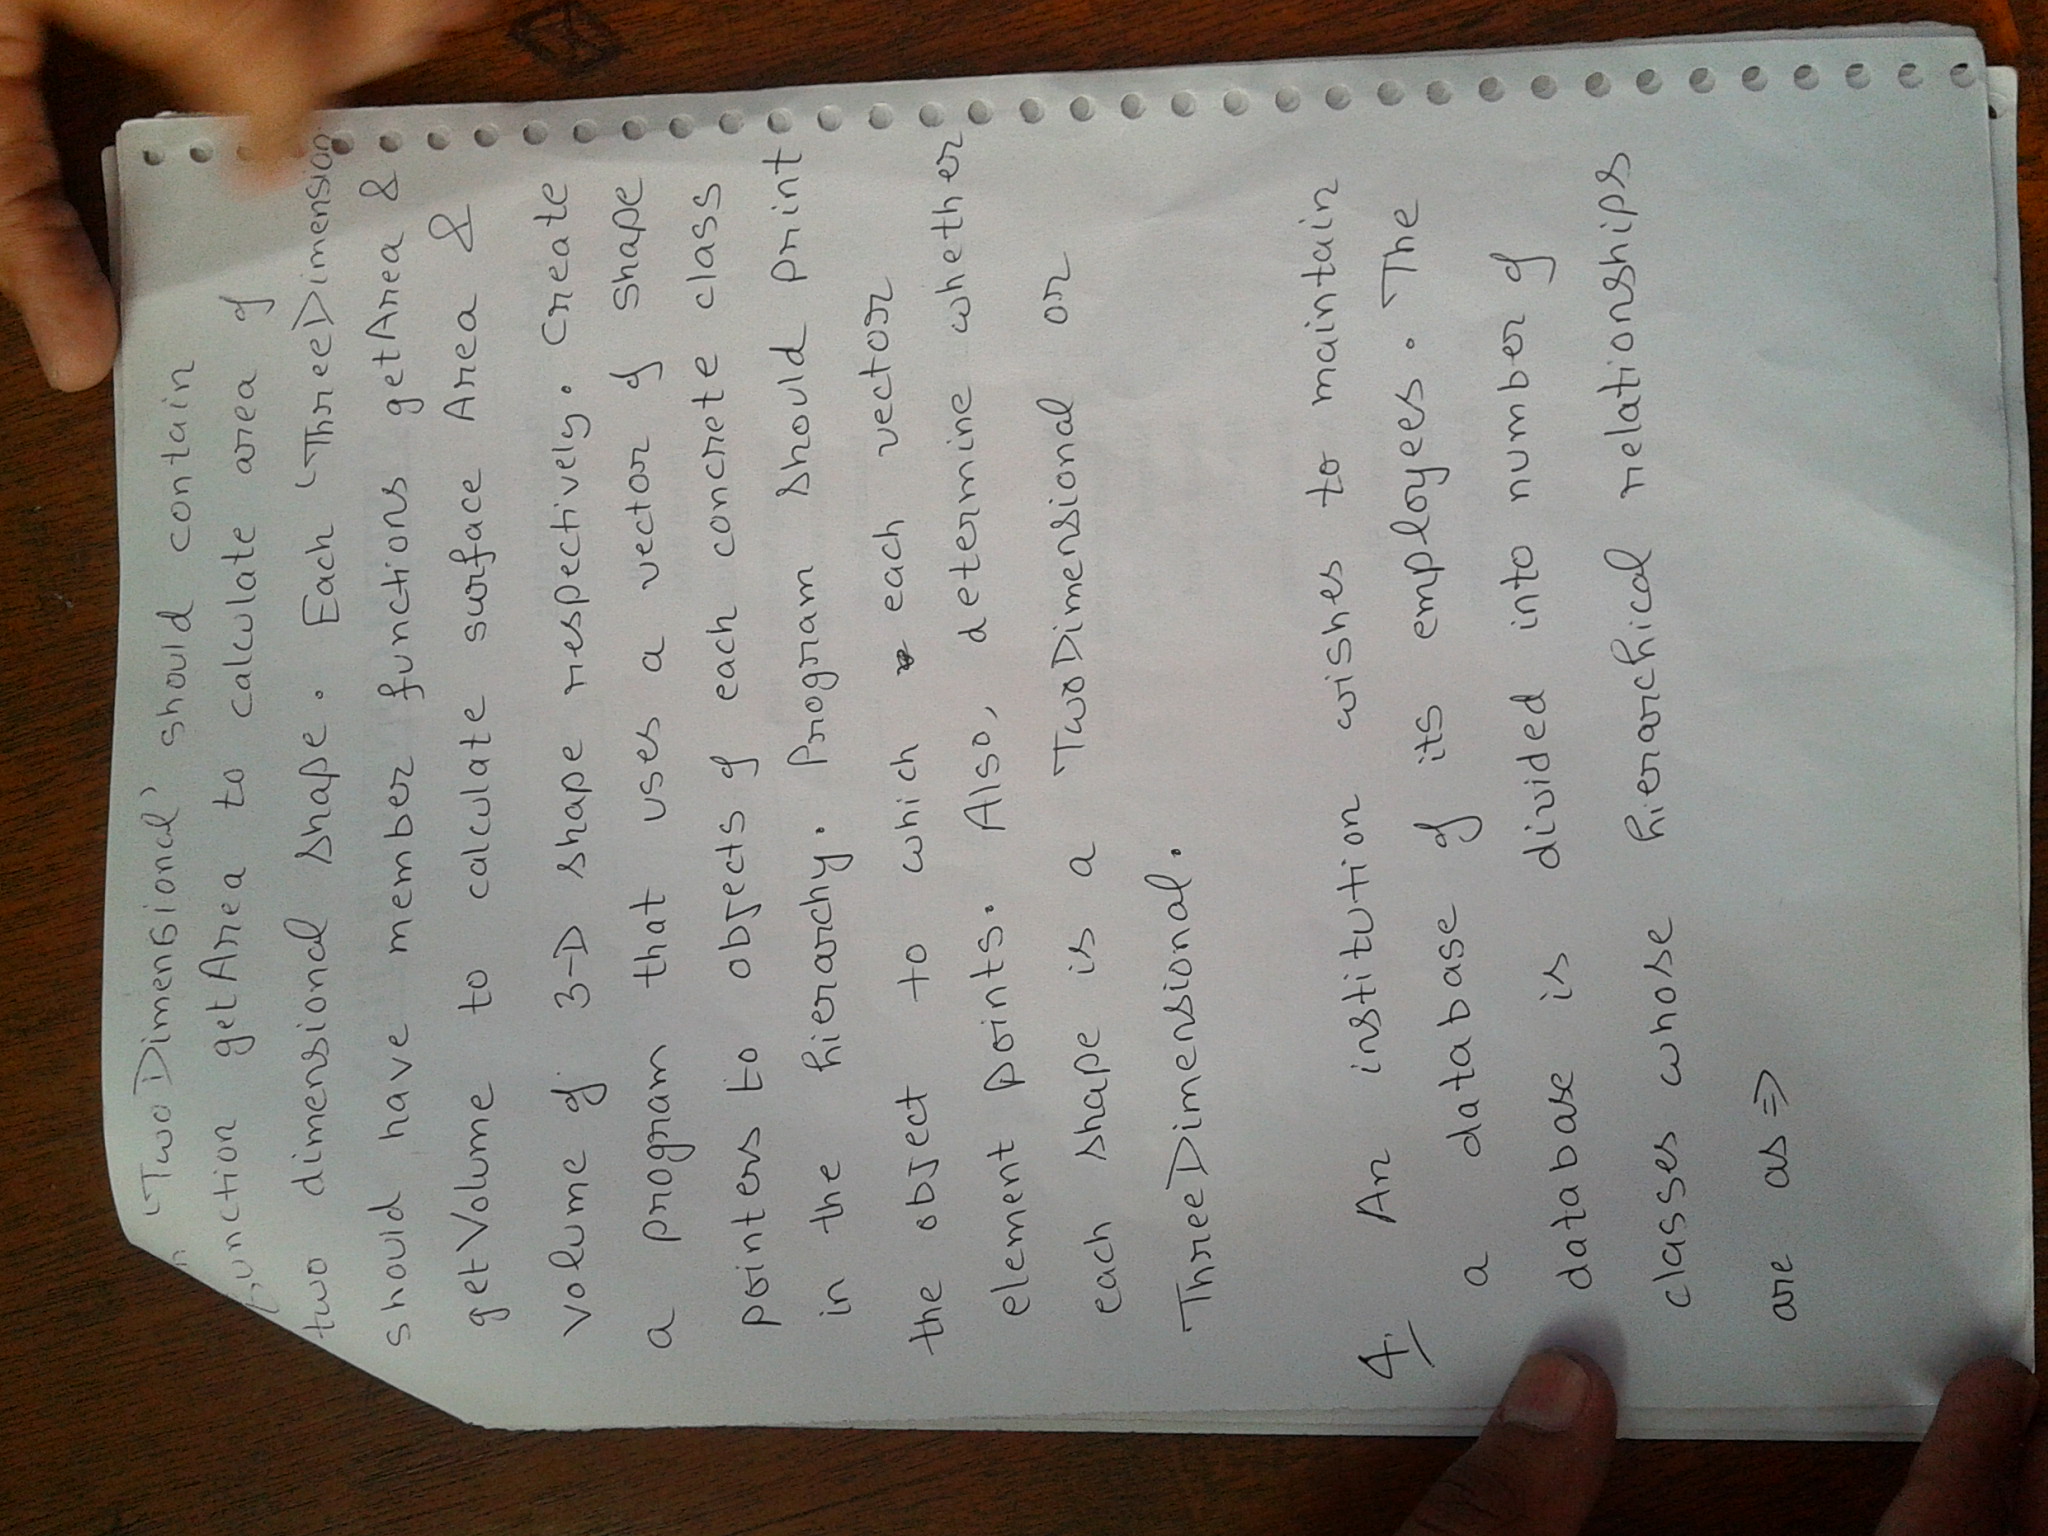 'TwoDimensional' should contain
function getArea to calculate area of
two dimensional shape. Each 'ThreeDimension
should have member functions getArea &
getVolume to calculate surface Area &
volume of 3-D shape respectively. Create
a program that uses a vector of shape
pointers to objects of each concrete class
in the hierarchy. Program should print
the object to which each vector
element points. Also, determine whether
each shape is a TwoDimensional or
ThreeDimensional.
4. An institution wishes to maintain
a database of its employees. The
database is divided into number of
classes whose hierarchical relationships
are as ⇒